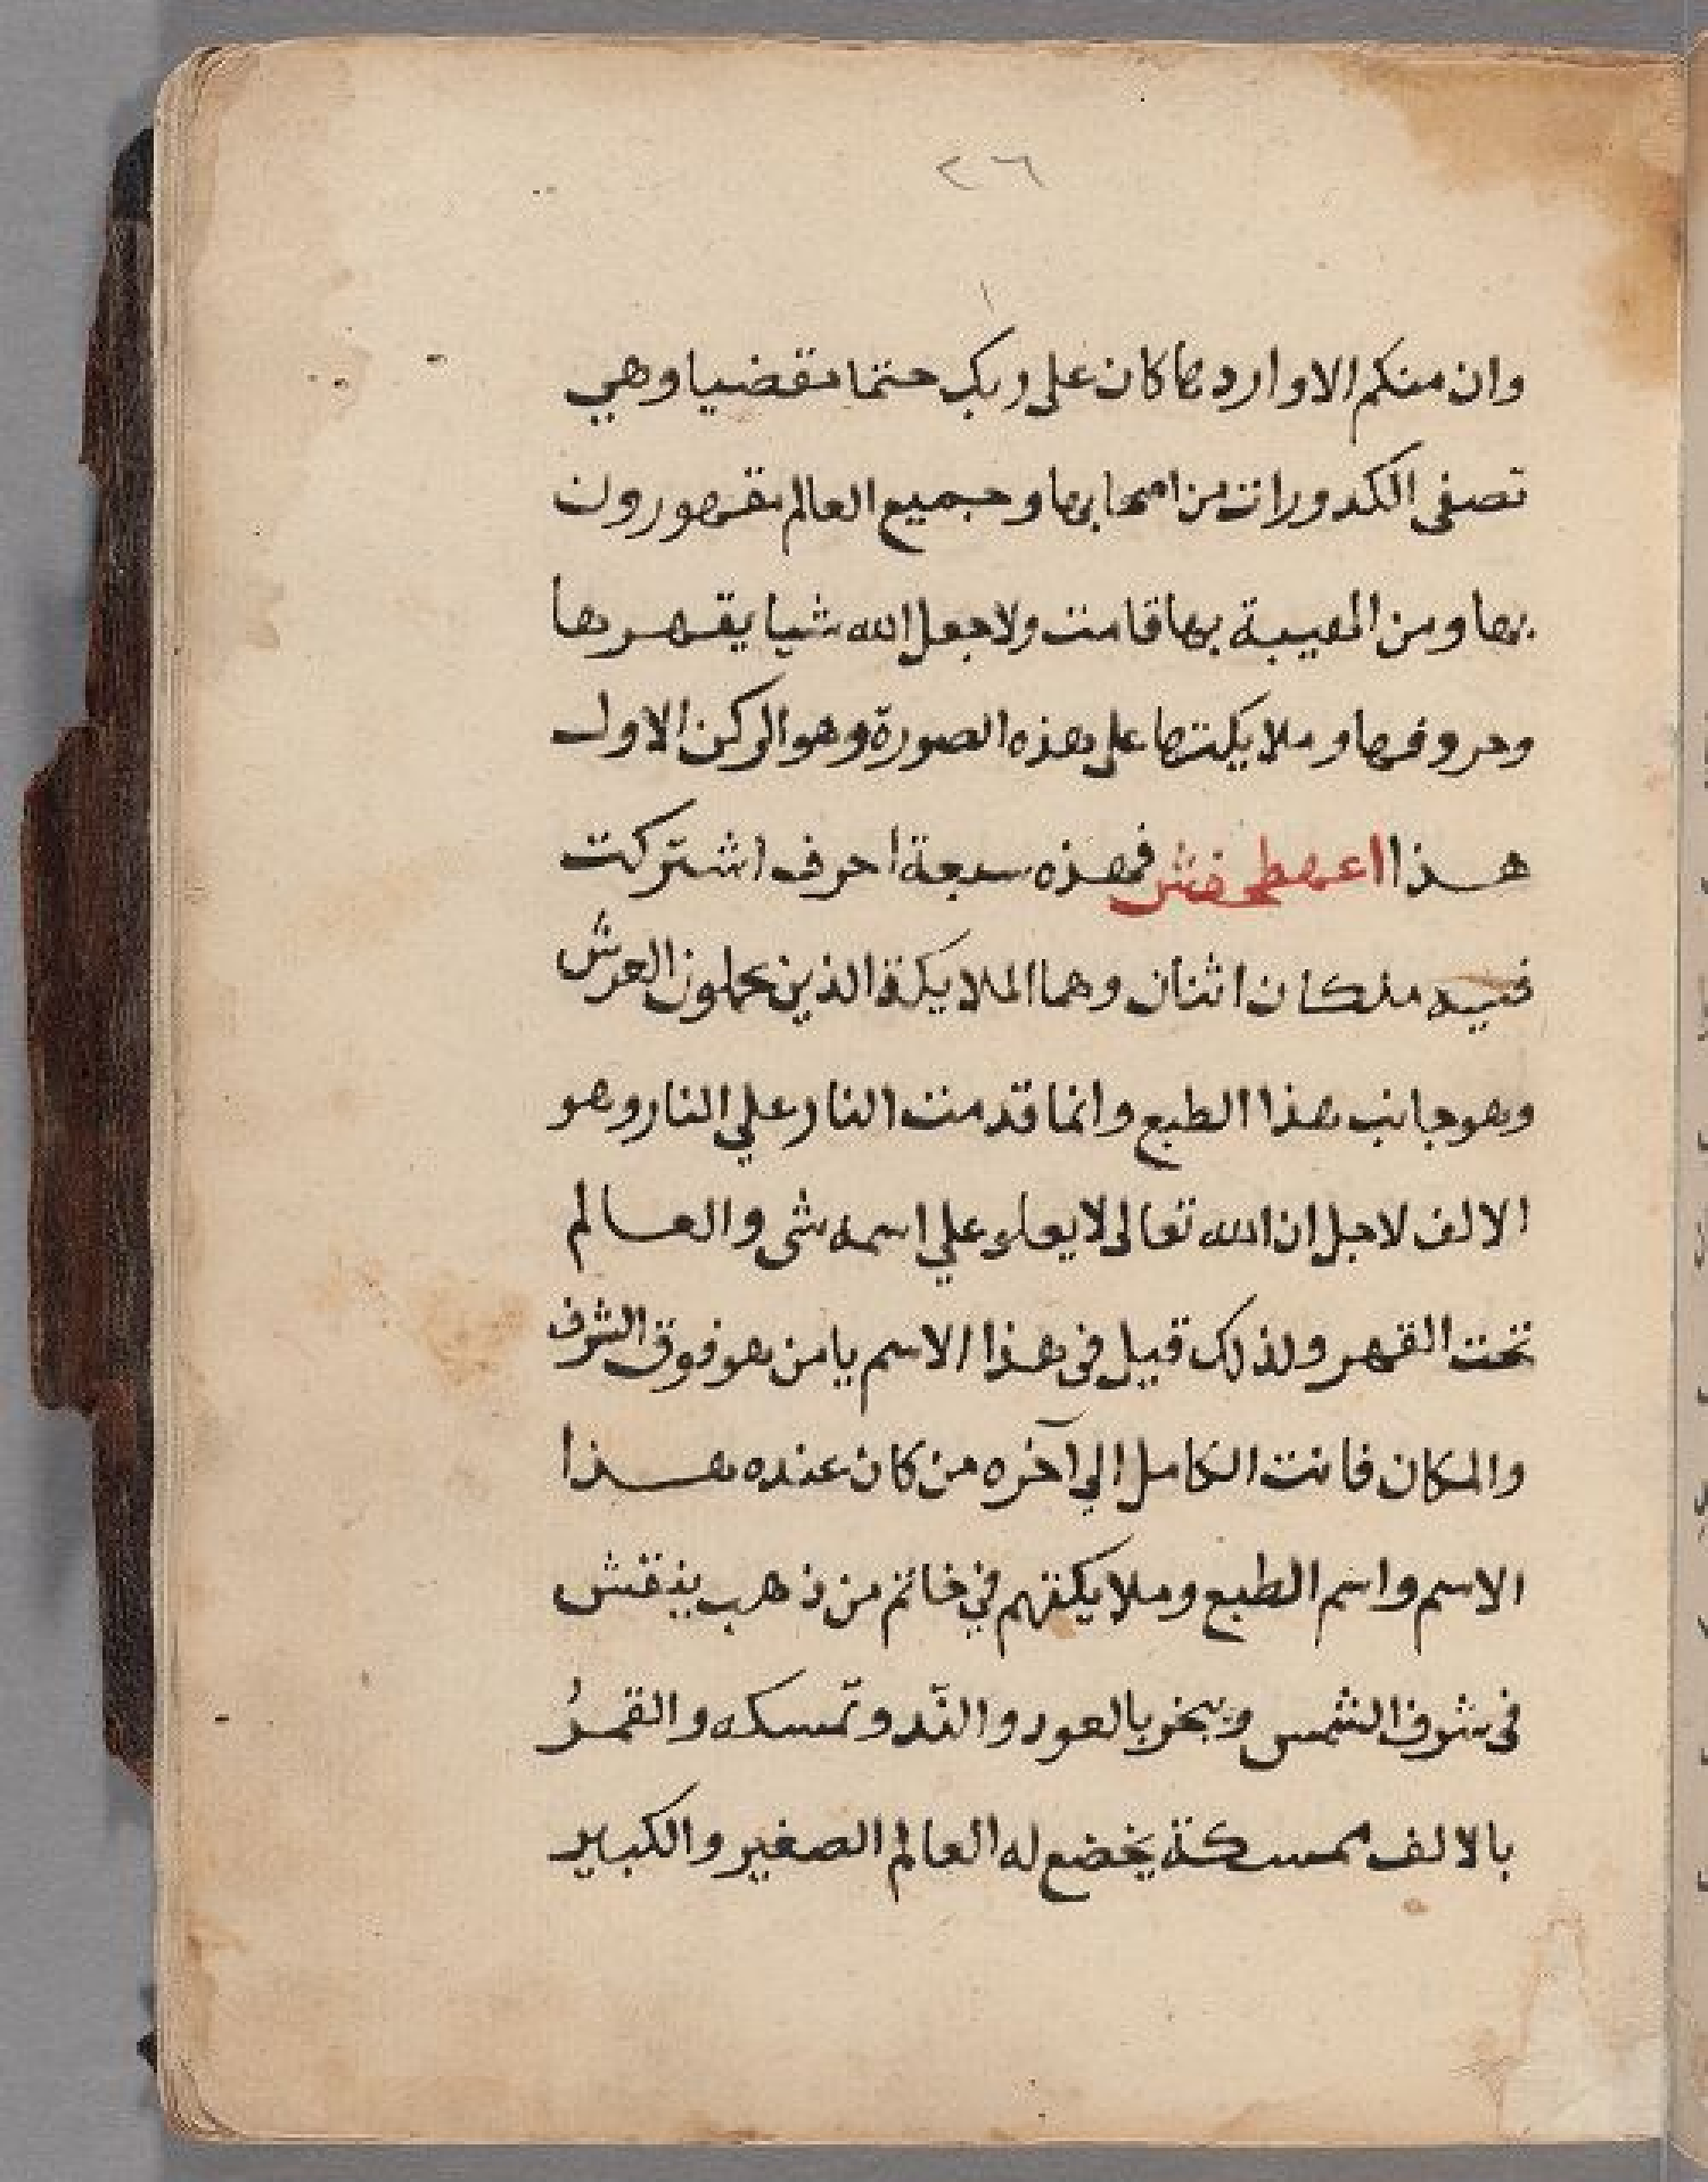 ٢٦
وان منكم الا واردها كان على ربك حتما مقضيا وهي
تصفى الكدورات من اصحابها وجميع العالم مقهورون
بها ومن الهيبة بها قامت ولا جعل الله شيا يقهرها
وحروفها وملايكتها على هذه الصورة وهو الركن الاول
هذا اعهطحفش فهذه سبعة احرف اشتركت
فيه ملكان اثنان وهما الملايكة الذين يحملون العرش
وهو جانب هذا الطبع وانما قدمت النار علي النار وهو
الالف لاجل ان الله تعالى لا يعلو علي اسمه شى والعالم
تحت القهر ولذلك قيل فى هذا الاسم يا من هو فوق الشرف
والمكان فانت الكامل الي آخره من كان عنده هذا
الاسم واسم الطبع وملايكتهم في خاتم من ذهب ينقش
فى شرف الشمس ويبخر بالعود والنّد وتمسكه والقمرُ
بالالف ممسكة يخضع له العالم الصغير والكبير